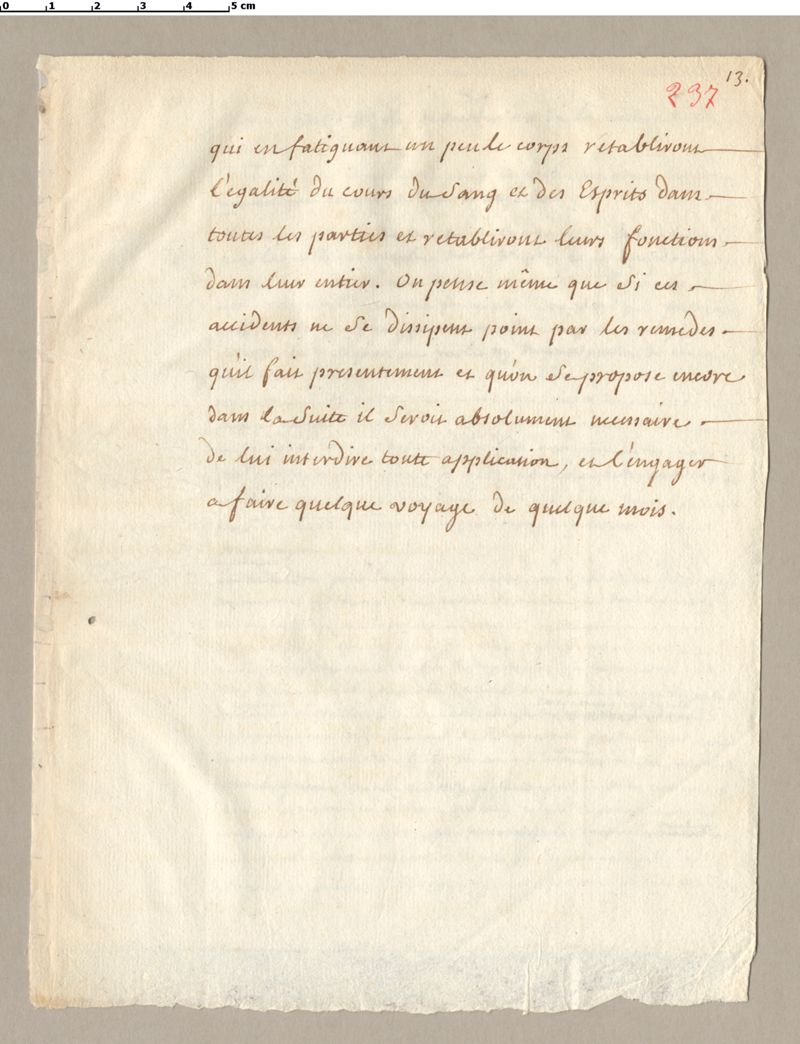 0 1 2 3 4 5 cm
13.
237
qui en fatiguant un peu le corps rétabliront
l'égalité du cours du Sang et des Esprits dans
toutes les parties et retabliront leurs fonctions
dans leur entier. On pense même que Si ces
accidents ne Se dissipent point par les remedes
qu'il fait presentement et qu'on Se propose encore
dans la Suite il Seroit absolument necessaire
de lui interdire toute application, et l'engager
a faire quelque voyage de quelque mois.